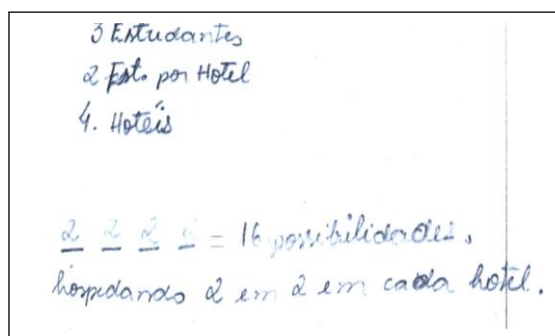 3 Estudantes
2 Est. por Hotel
4. Hotéis
2 2 2 2 = 16 possibilidades,
hospedando 2 em 2 em cada hotel.